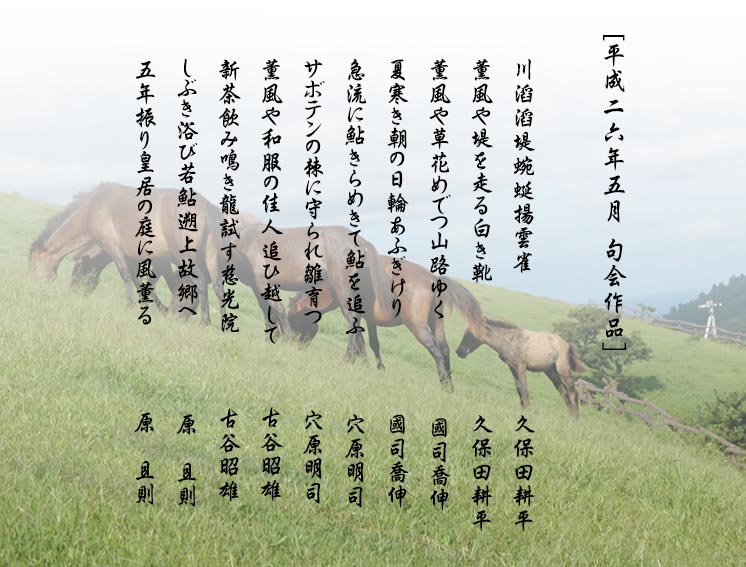 [平成二六年五月 句会作品]
川滔滔堤蜿蜒揚雲雀 久保田耕平
薫風や堤を走る白き靴 久保田耕平
薫風や草花めでつ山路ゆく 國司喬伸
夏寒き朝の日輪あふぎけり 國司喬伸
急流に鮎きらめきて鮎を追ふ 穴原明司
サボテンの棘に守られ雛育つ 穴原明司
薫風や和服の佳人追ひ越して 古谷昭雄
新茶飲み鳴き龍試す慈光院 古谷昭雄
しぶき浴び若鮎遡上故郷へ 原 且則
五年振り皇居の庭に風薫る 原 且則